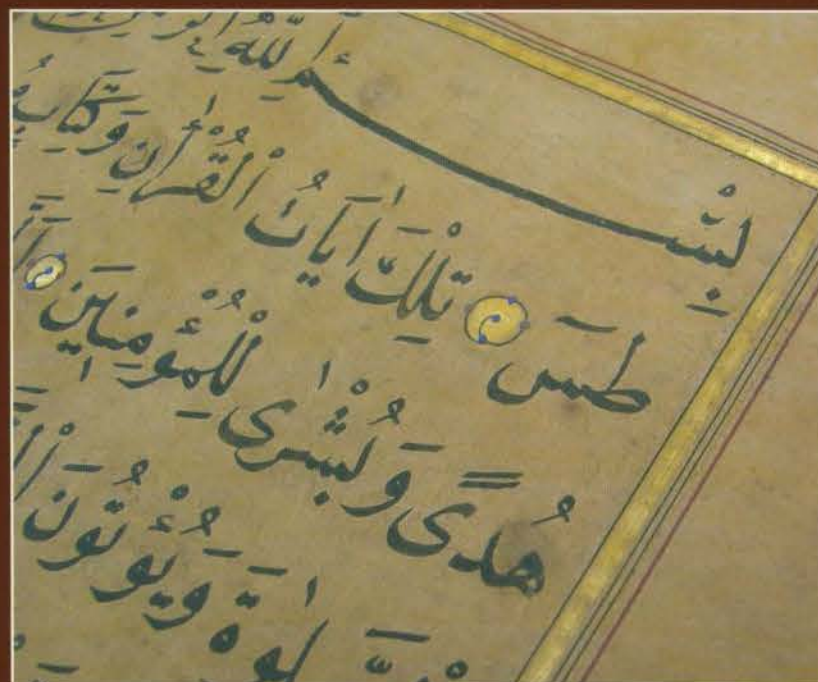 بِسْمِ اللّٰهِ
طٰسٓ ۝ تِلْكَ اٰيَاتُ الْقُرْاٰنِ وَكِتَابٍ
هُدًى وَبُشْرٰى لِلْمُؤْمِنٖينَ ۝
لٰوةَ وَيُؤْتُونَ